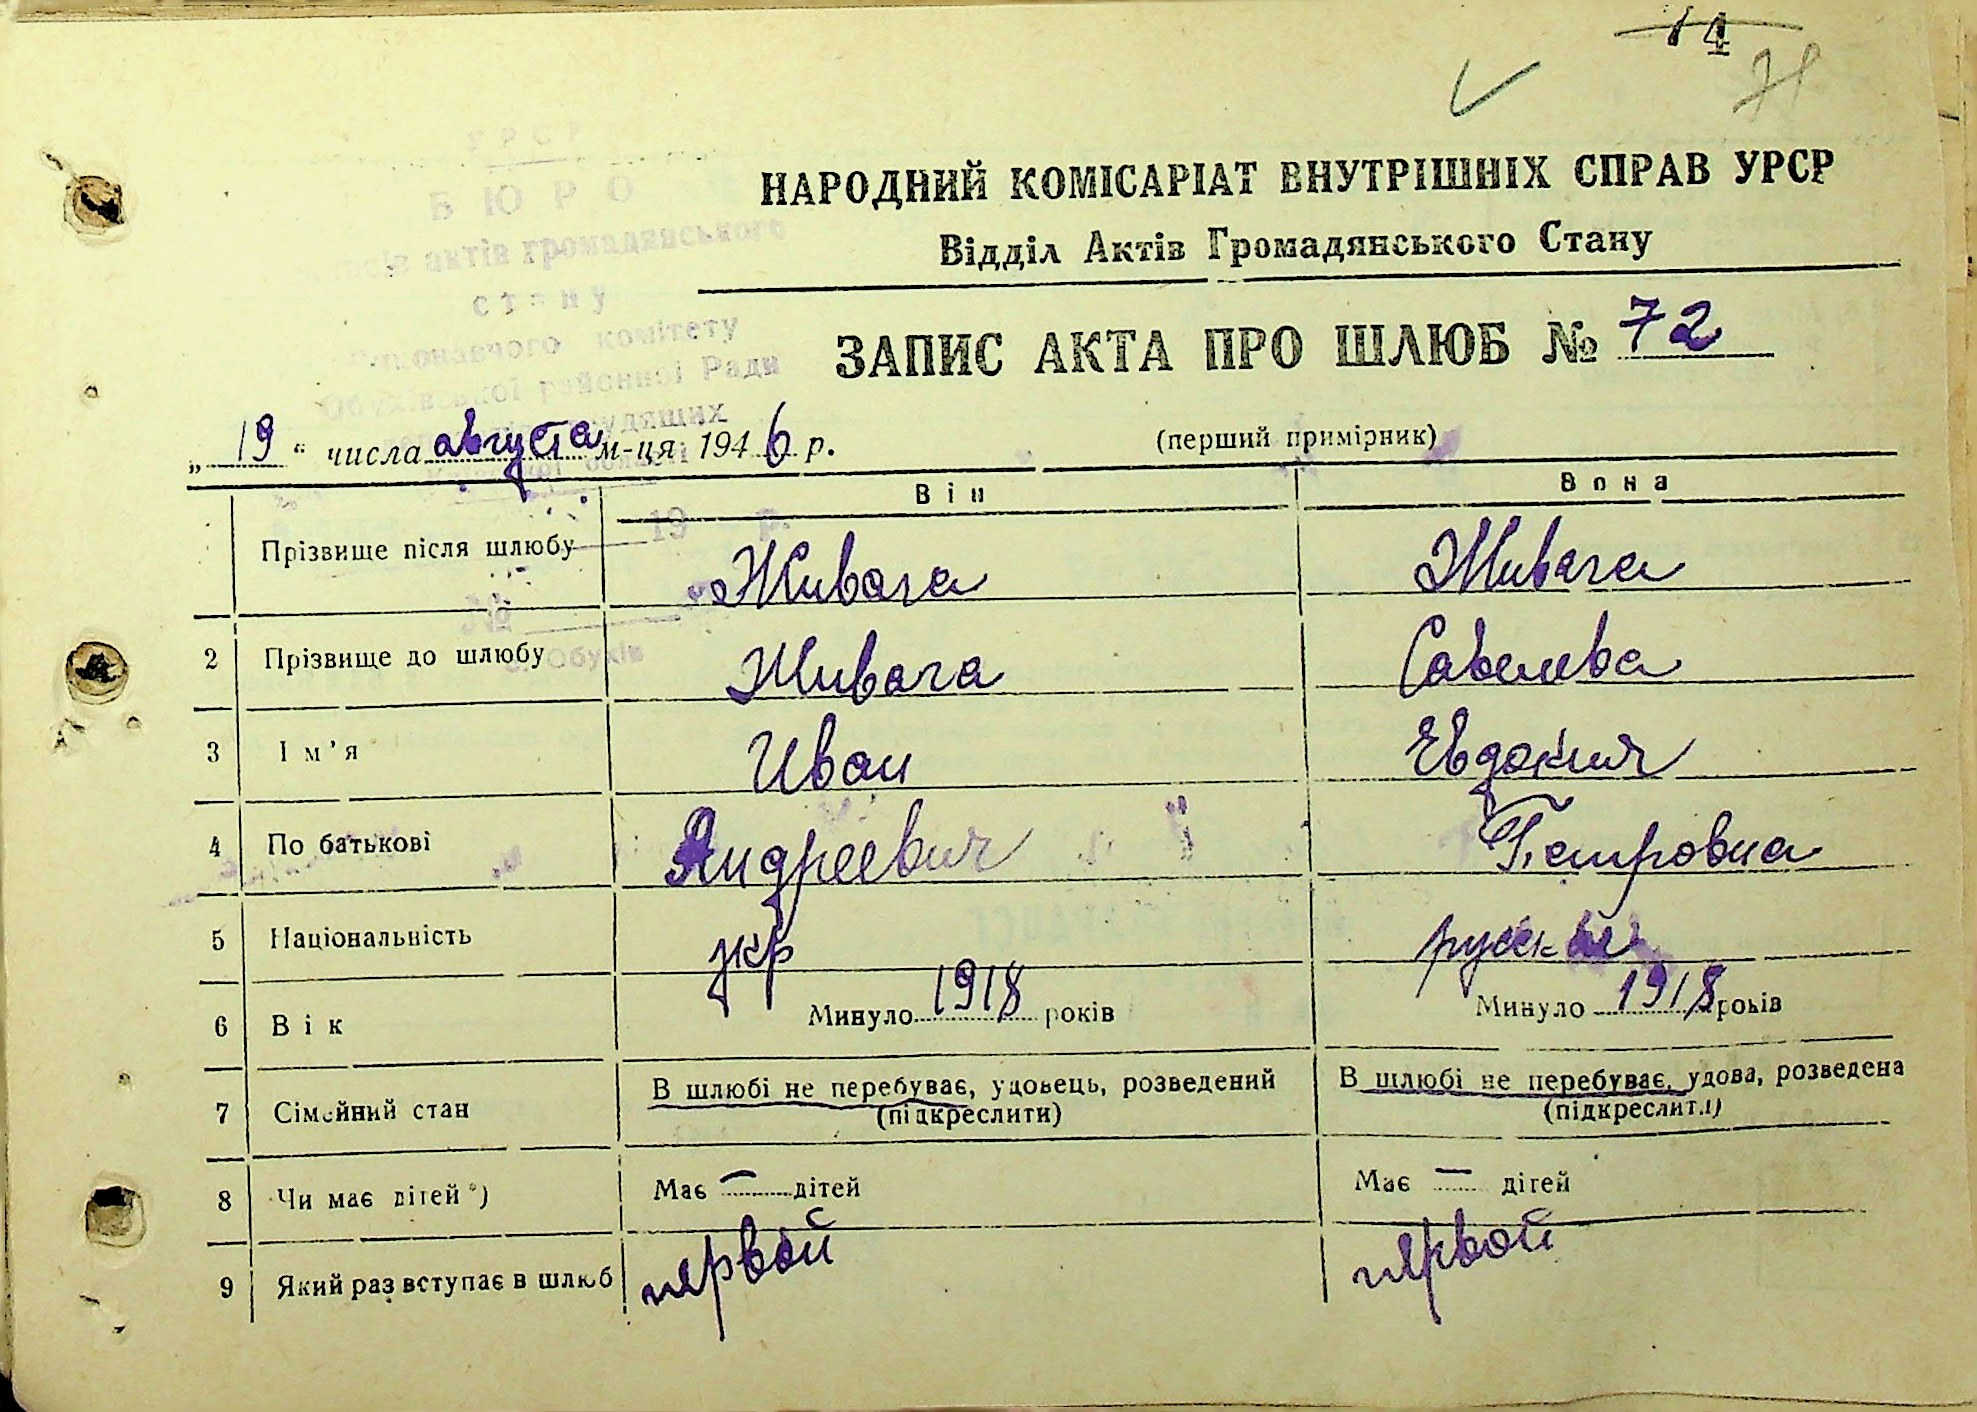 14
УРСР
БЮРО
актів громадянського
стану
комітету
районної Ради
НАРОДНИЙ КОМІСАРІАТ ВНУТРІШНІХ СПРАВ УРСР
Відділ Актів Громадянського Стану
ЗАПИС АКТА ПРО ШЛЮБ № 72
„ 19 “ числа августа м-ця 1946 р. (перший примірник)
Він Вона
19 р.
Прізвище після шлюбу Живага Живага
№
с. Обухів
2 Прізвище до шлюбу Живага Савелева
3 Ім’я Иван Евдокия
4 По батькові Андреевич Петровна
5 Національність укр русск
6 Вік Минуло 1918 років Минуло 1918 років
7 Сімейний стан В шлюбі не перебуває, удовець, розведений (підкреслити) В шлюбі не перебуває, удова, розведена (підкреслити)
8 Чи має дітей *) Має — дітей Має — дітей
9 Який раз вступає в шлюб первой первой